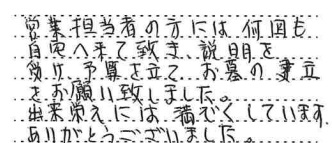 営業担当者の方には何回も
自宅へ来て致き、説明を
受け、予算を立て、お墓の建立
をお願い致しました。
出来栄えには満ぞくしています。
ありがとうございました。